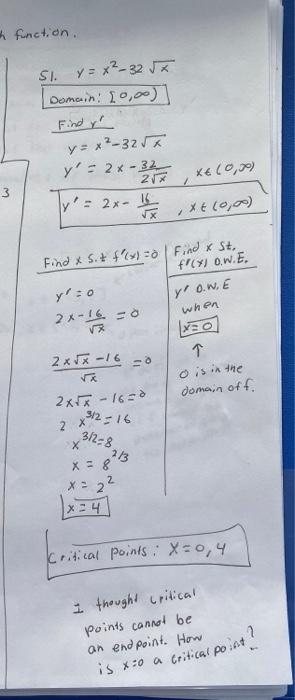 h function.
3
51. y = x² - 32 √x
Domain: [0,∞)
Find y'
y = x² - 32√x
y' = 2x - 32/2√x , x ∈ (0,∞)
y' = 2x - 16/√x , x ∈ (0,∞)
Find x s.t f'(x) = 0
y' = 0
2x - 16/√x = 0
2x√x - 16/√x = 0
2x√x - 16 = 0
2 x^3/2 = 16
x^3/2 = 8
x = 8^2/3
x = 2²
x = 4
Find x st.
f'(x) D.N.E.
y' D.N.E
when
x = 0
↑
0 is in the
domain of f.
Critical points: x = 0, 4
I thought critical
points cannot be
an endpoint. How
is x=0 a critical point?